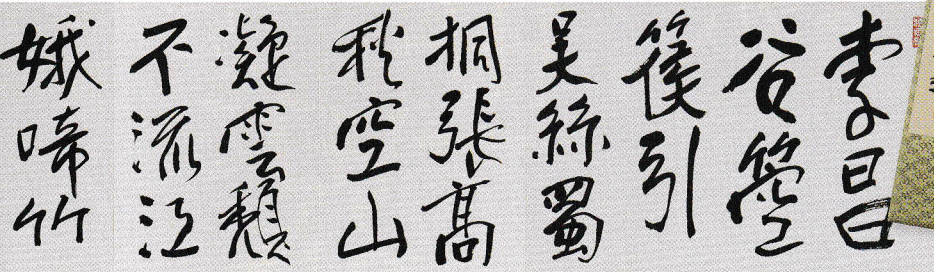 李昌
谷箜
篌引
吴絲蜀
桐張髙
秋空山
凝雲頹
不流江
娥啼竹